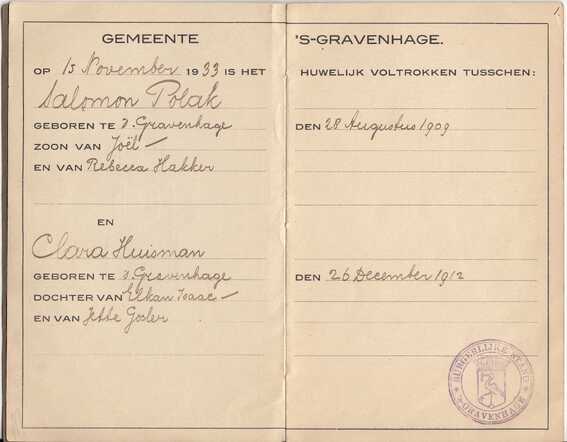 1
GEMEENTE 'S-GRAVENHAGE.
OP 15 November 1933 IS HET HUWELIJK VOLTROKKEN TUSSCHEN:
Salomon Polak
GEBOREN TE s. Gravenhage DEN 28 Augustus 1909
ZOON VAN Joël —
EN VAN Rebecca Hakker
EN
Clara Huisman
GEBOREN TE s. Gravenhage DEN 26 December 1912
DOCHTER VAN Elkan Isaac —
EN VAN Jette Gosler
BURGERLIJKE STAND
'S-GRAVENHAGE